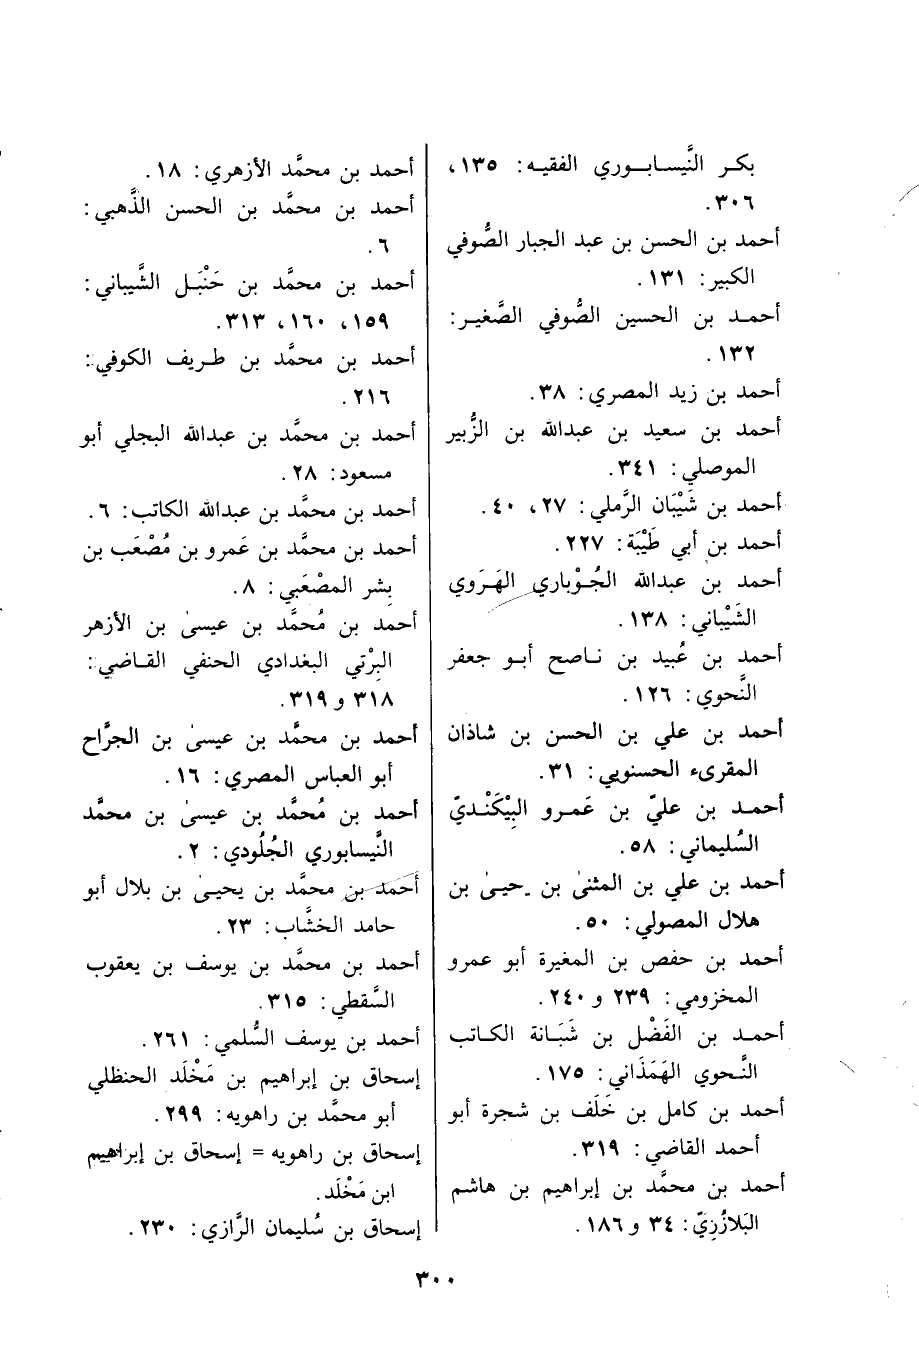 بكر النَّيسابوري الفقيه: ١٣٥،
٣٠٦.
أحمد بن الحسن بن عبد الجبار الصُّوفي
الكبير: ١٣١.
أحمد بن الحسين الصُّوفي الصَّغير:
١٣٢.
أحمد بن زيد المصري: ٣٨.
أحمد بن سعيد بن عبدالله بن الزُّبير
الموصلي: ٣٤١.
أحمد بن شَيْبَان الرَّملي: ٢٧، ٤٠.
أحمد بن أبي طَيْبَة: ٢٢٧.
أحمد بن عبدالله الجُوْباري الهَرَوي
الشَّيْباني: ١٣٨.
أحمد بن عُبيد بن ناصح أبو جعفر
النَّحوي: ١٢٦.
أحمد بن علي بن الحسن بن شاذان
المقرىء الحسنويي: ٣١.
أحمد بن عليّ بن عَمرو البِيْكَنْديّ
السُليماني: ٥٨.
أحمد بن علي بن المثنىٰ بن حيىٰ بن
هلال المصولي: ٥٠.
أحمد بن حفص بن المغيرة أبو عمرو
المخزومي: ٢٣٩ و ٢٤٠.
أحمد بن الفَضْل بن شَبَانة الكاتب
النَّحوي الهَمَذَاني: ١٧٥.
أحمد بن كامل بن خَلَف بن شجرة أبو
أحمد القاضي: ٣١٩.
أحمد بن محمَّد بن إبراهيم بن هاشم
البَلاذُرِيّ: ٣٤ و ١٨٦.
أحمد بن محمَّد الأزهري: ١٨.
أحمد بن محمَّد بن الحسن الذَّهبي:
٦.
أحمد بن محمَّد بن حَنْبَل الشَّيباني:
١٥٩، ١٦٠، ٣١٣.
أحمد بن محمَّد بن طريف الكوفي:
٢١٦.
أحمد بن محمَّد بن عبدالله البجلي أبو
مسعود: ٢٨.
أحمد بن محمَّد بن عبدالله الكاتب: ٦.
أحمد بن محمَّد بن عَمرو بن مُصْعَب بن
بِشر المصْعَبي: ٨.
أحمد بن مُحمَّد بن عيسىٰ بن الأزهر
البِرْتي البغدادي الحنفي القاضي:
٣١٨ و ٣١٩.
أحمد بن محمَّد بن عيسىٰ بن الجرَّاح
أبو العباس المصري: ١٦.
أحمد بن مُحمَّد بن عيسىٰ بن محمَّد
النَّيسابوري الجُلُودي: ٢.
أحمد بن محمَّد بن يحيىٰ بن بلال أبو
حامد الخشَّاب: ٢٣.
أحمد بن محمَّد بن يوسف بن يعقوب
السَّقطي: ٣١٥.
أحمد بن يوسف السُّلمي: ٢٦١.
إسحاق بن إبراهيم بن مَخْلَد الحنظلي
أبو محمَّد بن راهويه: ٢٩٩.
إسحاق بن راهويه = إسحاق بن إبراهيم
ابن مَخْلَد.
إسحاق بن سُليمان الرَّازي: ٢٣٠.
٣٠٠